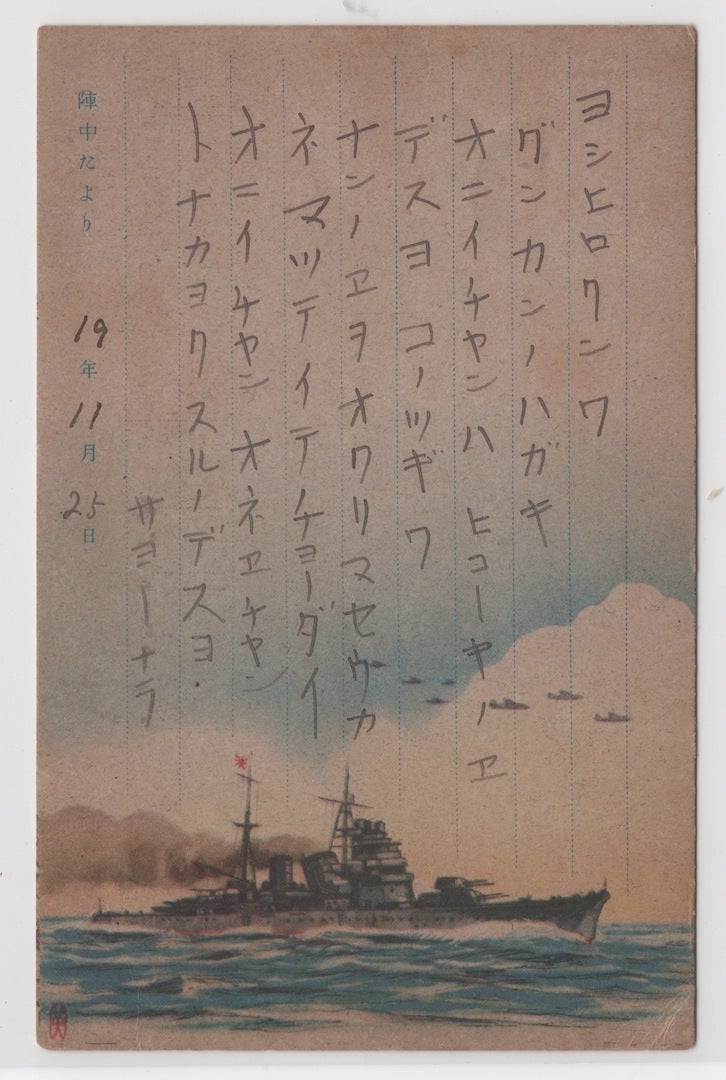 ヨシヒロクンワ
グンカンノハガキ
オニイチャンハ ヒコーキノヱ
デスヨ コノツギワ
ナンノヱヲオクリマセウカ
ネ マツテイテチョーダイ
オニイチャン オネヱチャン
トナカヨクスルノデスヨ.
サヨーナラ
陣中だより
19年11月25日